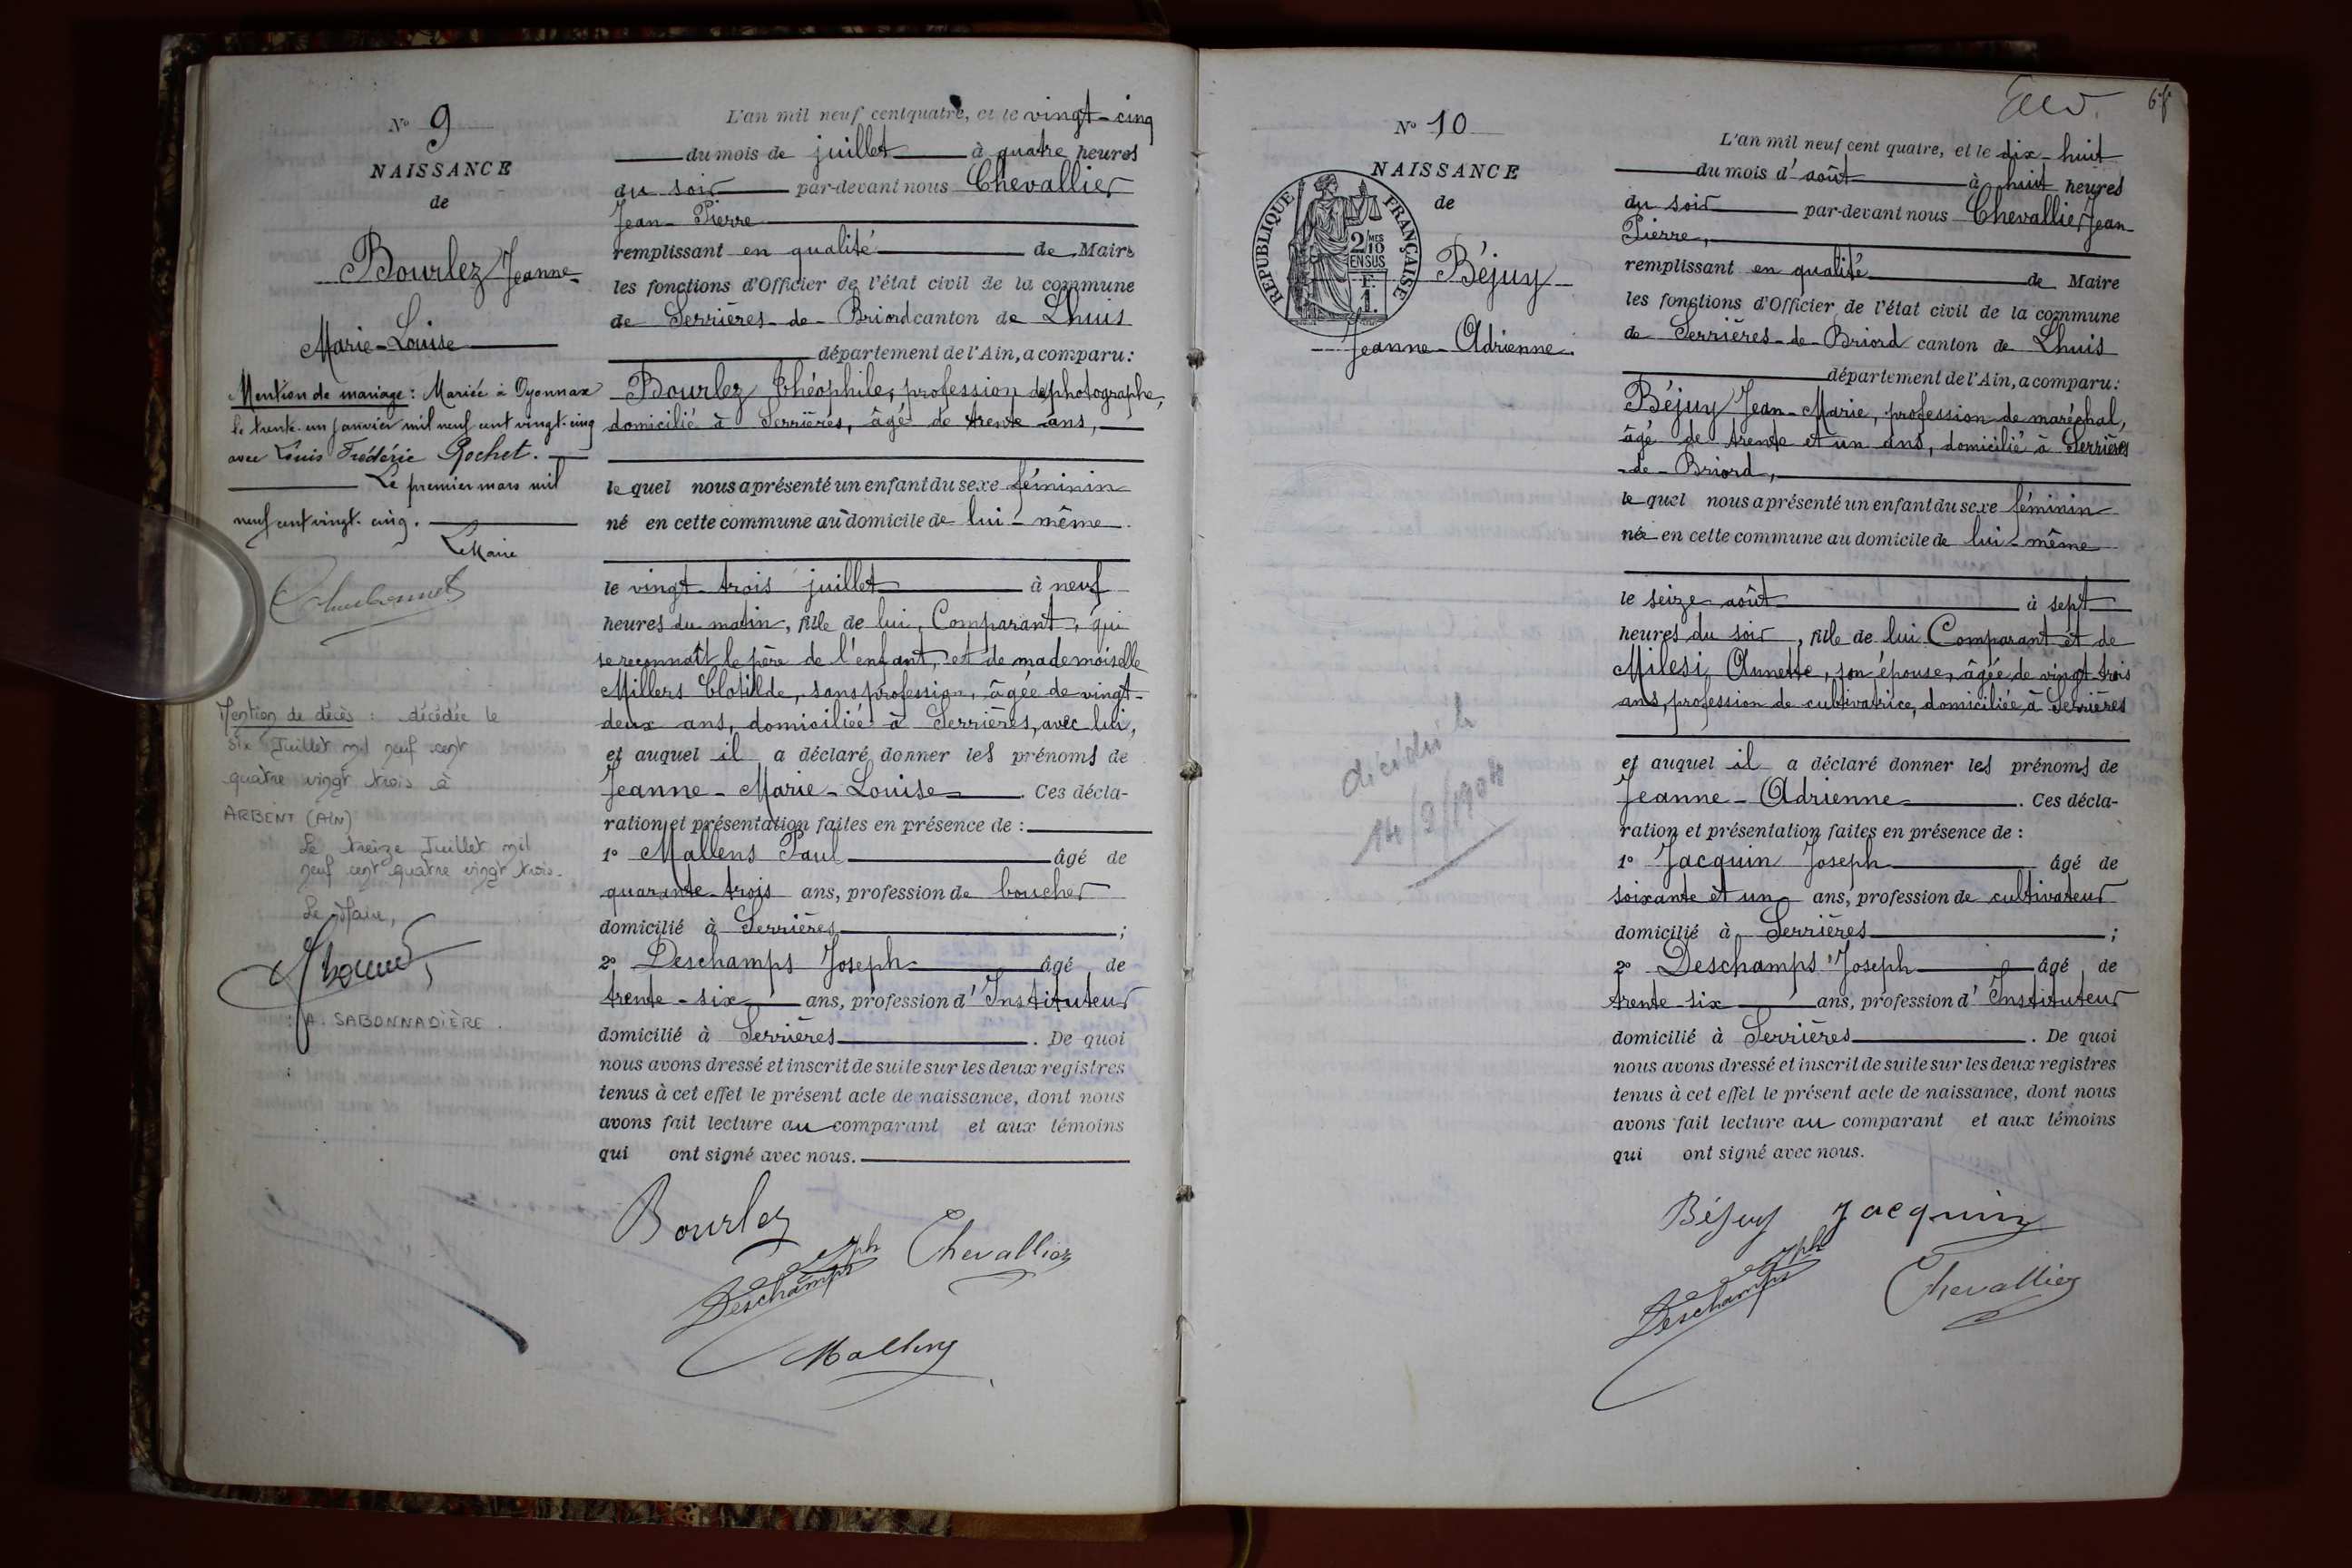 N° 9
NAISSANCE
de
Bourlez Jeanne-
Marie-Louise
Mention de mariage : Mariée à Oyonnax
le trente-un janvier mil neuf cent vingt-cinq
avec Louis Frédéric Rochet.
Le premier mars mil
neuf cent vingt-cinq.
Le Maire
Mention de décès : décédée le
six Juillet mil neuf cent
quatre vingt trois à
ARBENT (AIN)
Le treize Juillet mil
neuf cent quatre vingt trois.
Le Maire,
A. SABONNADIÈRE.
L'an mil neuf cent quatre, et le vingt-cinq
du mois de juillet à quatre heures
du soir par-devant nous Chevallier
Jean-Pierre
remplissant en qualité de Maire
les fonctions d'Officier de l'état civil de la commune
de Serrières-de-Briord canton de Lhuis
département de l'Ain, a comparu :
Bourlez Théophile, profession de photographe,
domicilié à Serrières, âgé de trente ans,
lequel nous a présenté un enfant du sexe féminin
né en cette commune au domicile de lui-même
le vingt-trois juillet à neuf
heures du matin, fille de lui, Comparant, qui
se reconnaît le père de l'enfant, et de mademoiselle
Millers Clotilde, sans profession, âgée de vingt-
deux ans, domiciliée à Serrières, avec lui,
et auquel il a déclaré donner les prénoms de
Jeanne-Marie-Louise. Ces décla-
ration et présentation faites en présence de :
1° Mallens Paul âgé de
quarante-trois ans, profession de boucher
domicilié à Serrières ;
2° Deschamps Joseph âgé de
trente-six ans, profession d'Instituteur
domicilié à Serrières. De quoi
nous avons dressé et inscrit de suite sur les deux registres
tenus à cet effet le présent acte de naissance, dont nous
avons fait lecture au comparant et aux témoins
qui ont signé avec nous.
Bourlez
Deschamps Jph Chevallier
N° 10
NAISSANCE
de
REPUBLIQUE FRANÇAISE
2/10 MES
EN SUS
F.
1.
Béjuy
Jeanne-Adrienne.
décédée le
14/9/1904
L'an mil neuf cent quatre, et le dix-huit
du mois d'août à huit heures
du soir par-devant nous Chevallier Jean-
Pierre,
remplissant en qualité de Maire
les fonctions d'Officier de l'état civil de la commune
de Serrières-de-Briord canton de Lhuis
département de l'Ain, a comparu :
Béjuy Jean-Marie, profession de maréchal,
âgé de trente et un ans, domicilié à Serrières
-de-Briord,
lequel nous a présenté un enfant du sexe féminin
née en cette commune au domicile de lui-même
le seize août à sept
heures du soir, fille de lui Comparant et de
Milesi Annette, son épouse, âgée de vingt-trois
ans, profession de cultivatrice, domiciliée à Serrières
et auquel il a déclaré donner les prénoms de
Jeanne-Adrienne. Ces décla-
ration et présentation faites en présence de :
1° Jacquin Joseph âgé de
soixante et un ans, profession de cultivateur
domicilié à Serrières ;
2° Deschamps Joseph âgé de
trente-six ans, profession d'Instituteur
domicilié à Serrières. De quoi
nous avons dressé et inscrit de suite sur les deux registres
tenus à cet effet le présent acte de naissance, dont nous
avons fait lecture au comparant et aux témoins
qui ont signé avec nous.
Béjuy Jacquin
Deschamps Jph Chevallier